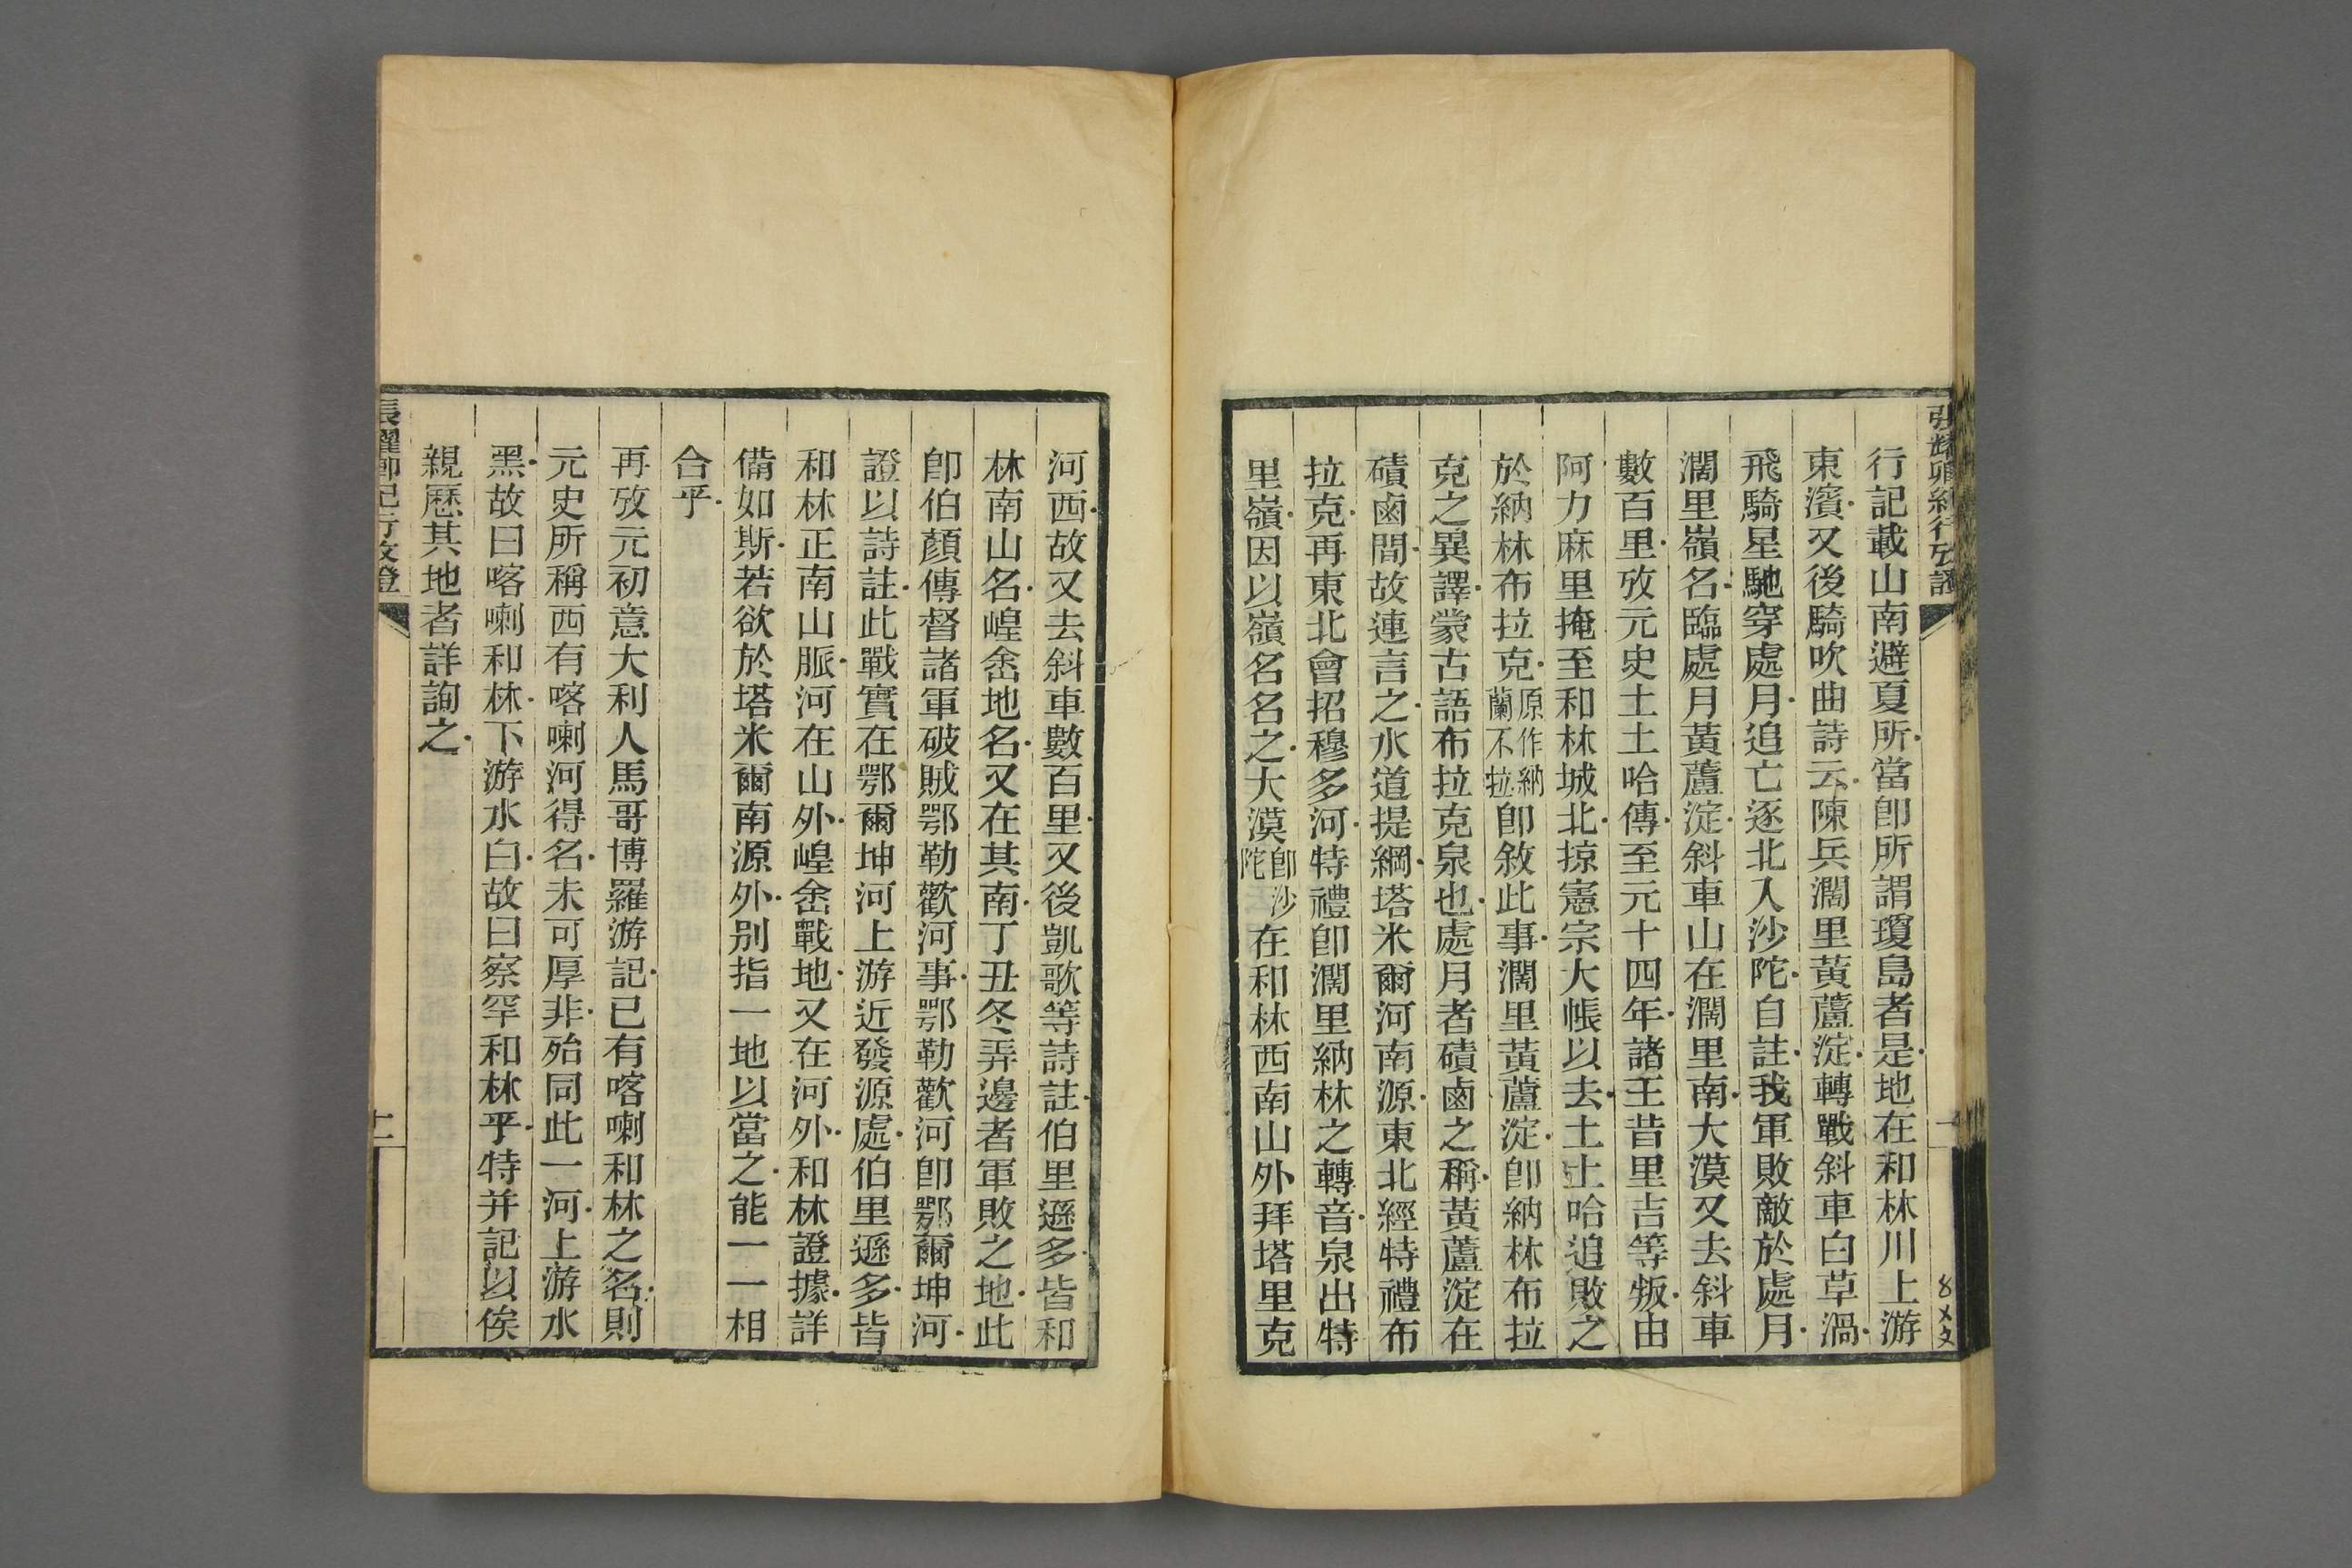 張耀卿紀行攷證
行記載山南避夏所當卽所謂瓊島者是地在和林川上游
東濱又後騎吹曲詩云陳兵濶里黃蘆淀轉戰斜車白草渦
飛騎星馳穿處月追亡逐北入沙陀自註我軍敗敵於處月
濶里嶺名臨處月黃蘆淀斜車山在濶里南大漠又去斜車
數百里攷元史土土哈傳至元十四年諸王昔里吉等叛由
阿力麻里掩至和林城北掠憲宗大帳以去土土哈追敗之
於納林布拉克原作納蘭不拉卽敘此事濶里黃蘆淀卽納林布拉
克之異譯蒙古語布拉克泉也處月者磧鹵之稱黃蘆淀在
磧鹵間故連言之水道提綱塔米爾河南源東北經特禮布
拉克再東北會招穆多河特禮卽濶里納林之轉音泉出特
里嶺因以嶺名名之大漠卽沙陀在和林西南山外拜塔里克
河西故又去斜車數百里又後凱歌等詩註伯里遜多皆和
林南山名崲嵞地名又在其南丁丑冬弄邊者軍敗之地此
卽伯顏傳督諸軍破賊鄂勒歡河事鄂勒歡河卽鄂爾坤河
證以詩註此戰實在鄂爾坤河上游近發源處伯里遜多皆
和林正南山脈河在山外崲嵞戰地又在河外和林證據詳
備如斯若欲於塔米爾南源外別指一地以當之能一一相
合乎
再攷元初意大利人馬哥博羅游記已有喀喇和林之名則
元史所稱西有喀喇河得名未可厚非殆同此一河上游水
黑故曰喀喇和林下游水白故曰察罕和林乎特并記以俟
親歷其地者詳詢之
張耀卿紀行攷證
十一